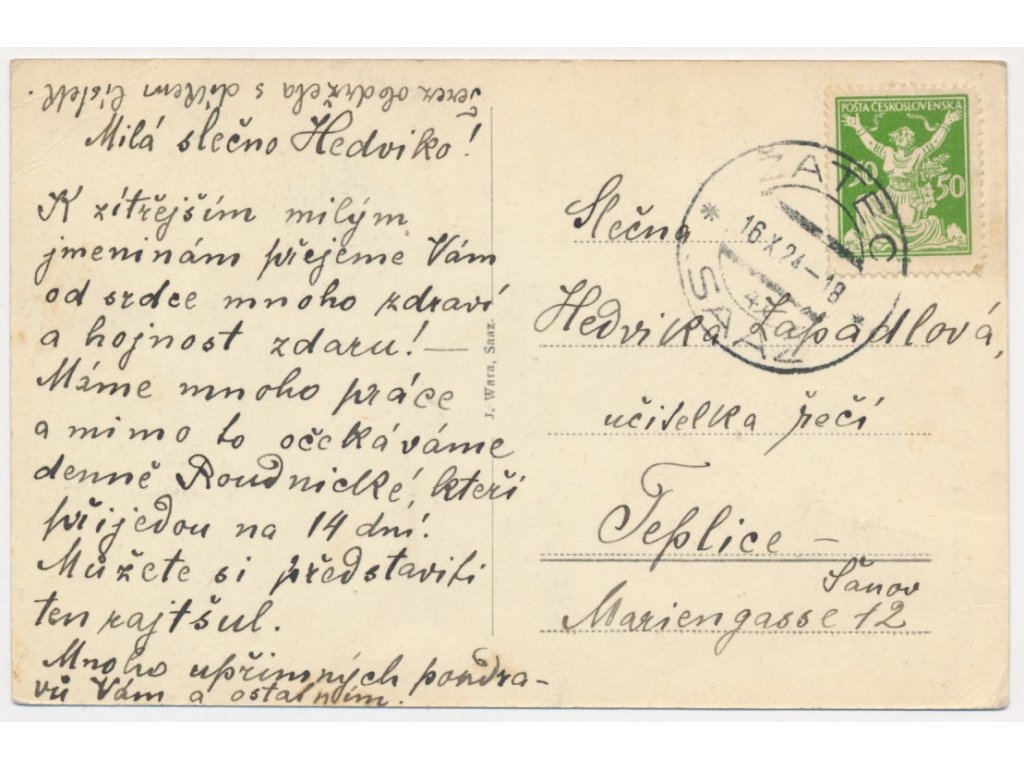 Milá slečno Hedviko!
K zítřejším milým
jmeninám přejeme Vám
od srdce mnoho zdraví
a hojnost zdaru! —
Máme mnoho práce
a mimo to očekáváme
denně Roudnické, kteří
přijedou na 14 dní!
Můžete si představiti
ten rajtšul.
Mnoho upřímných pozdra-
vů Vám a ostatním.
obdržela s díkem lístek.
J. Wara, Saaz.
POŠTA ČESKOSLOVENSKÁ
50 50
ŽATEC
16.X.24-18
* SAAZ *
Slečna
Hedvika Zapadlová,
učitelka řečí
Teplice –
Šanov
Mariengasse 12